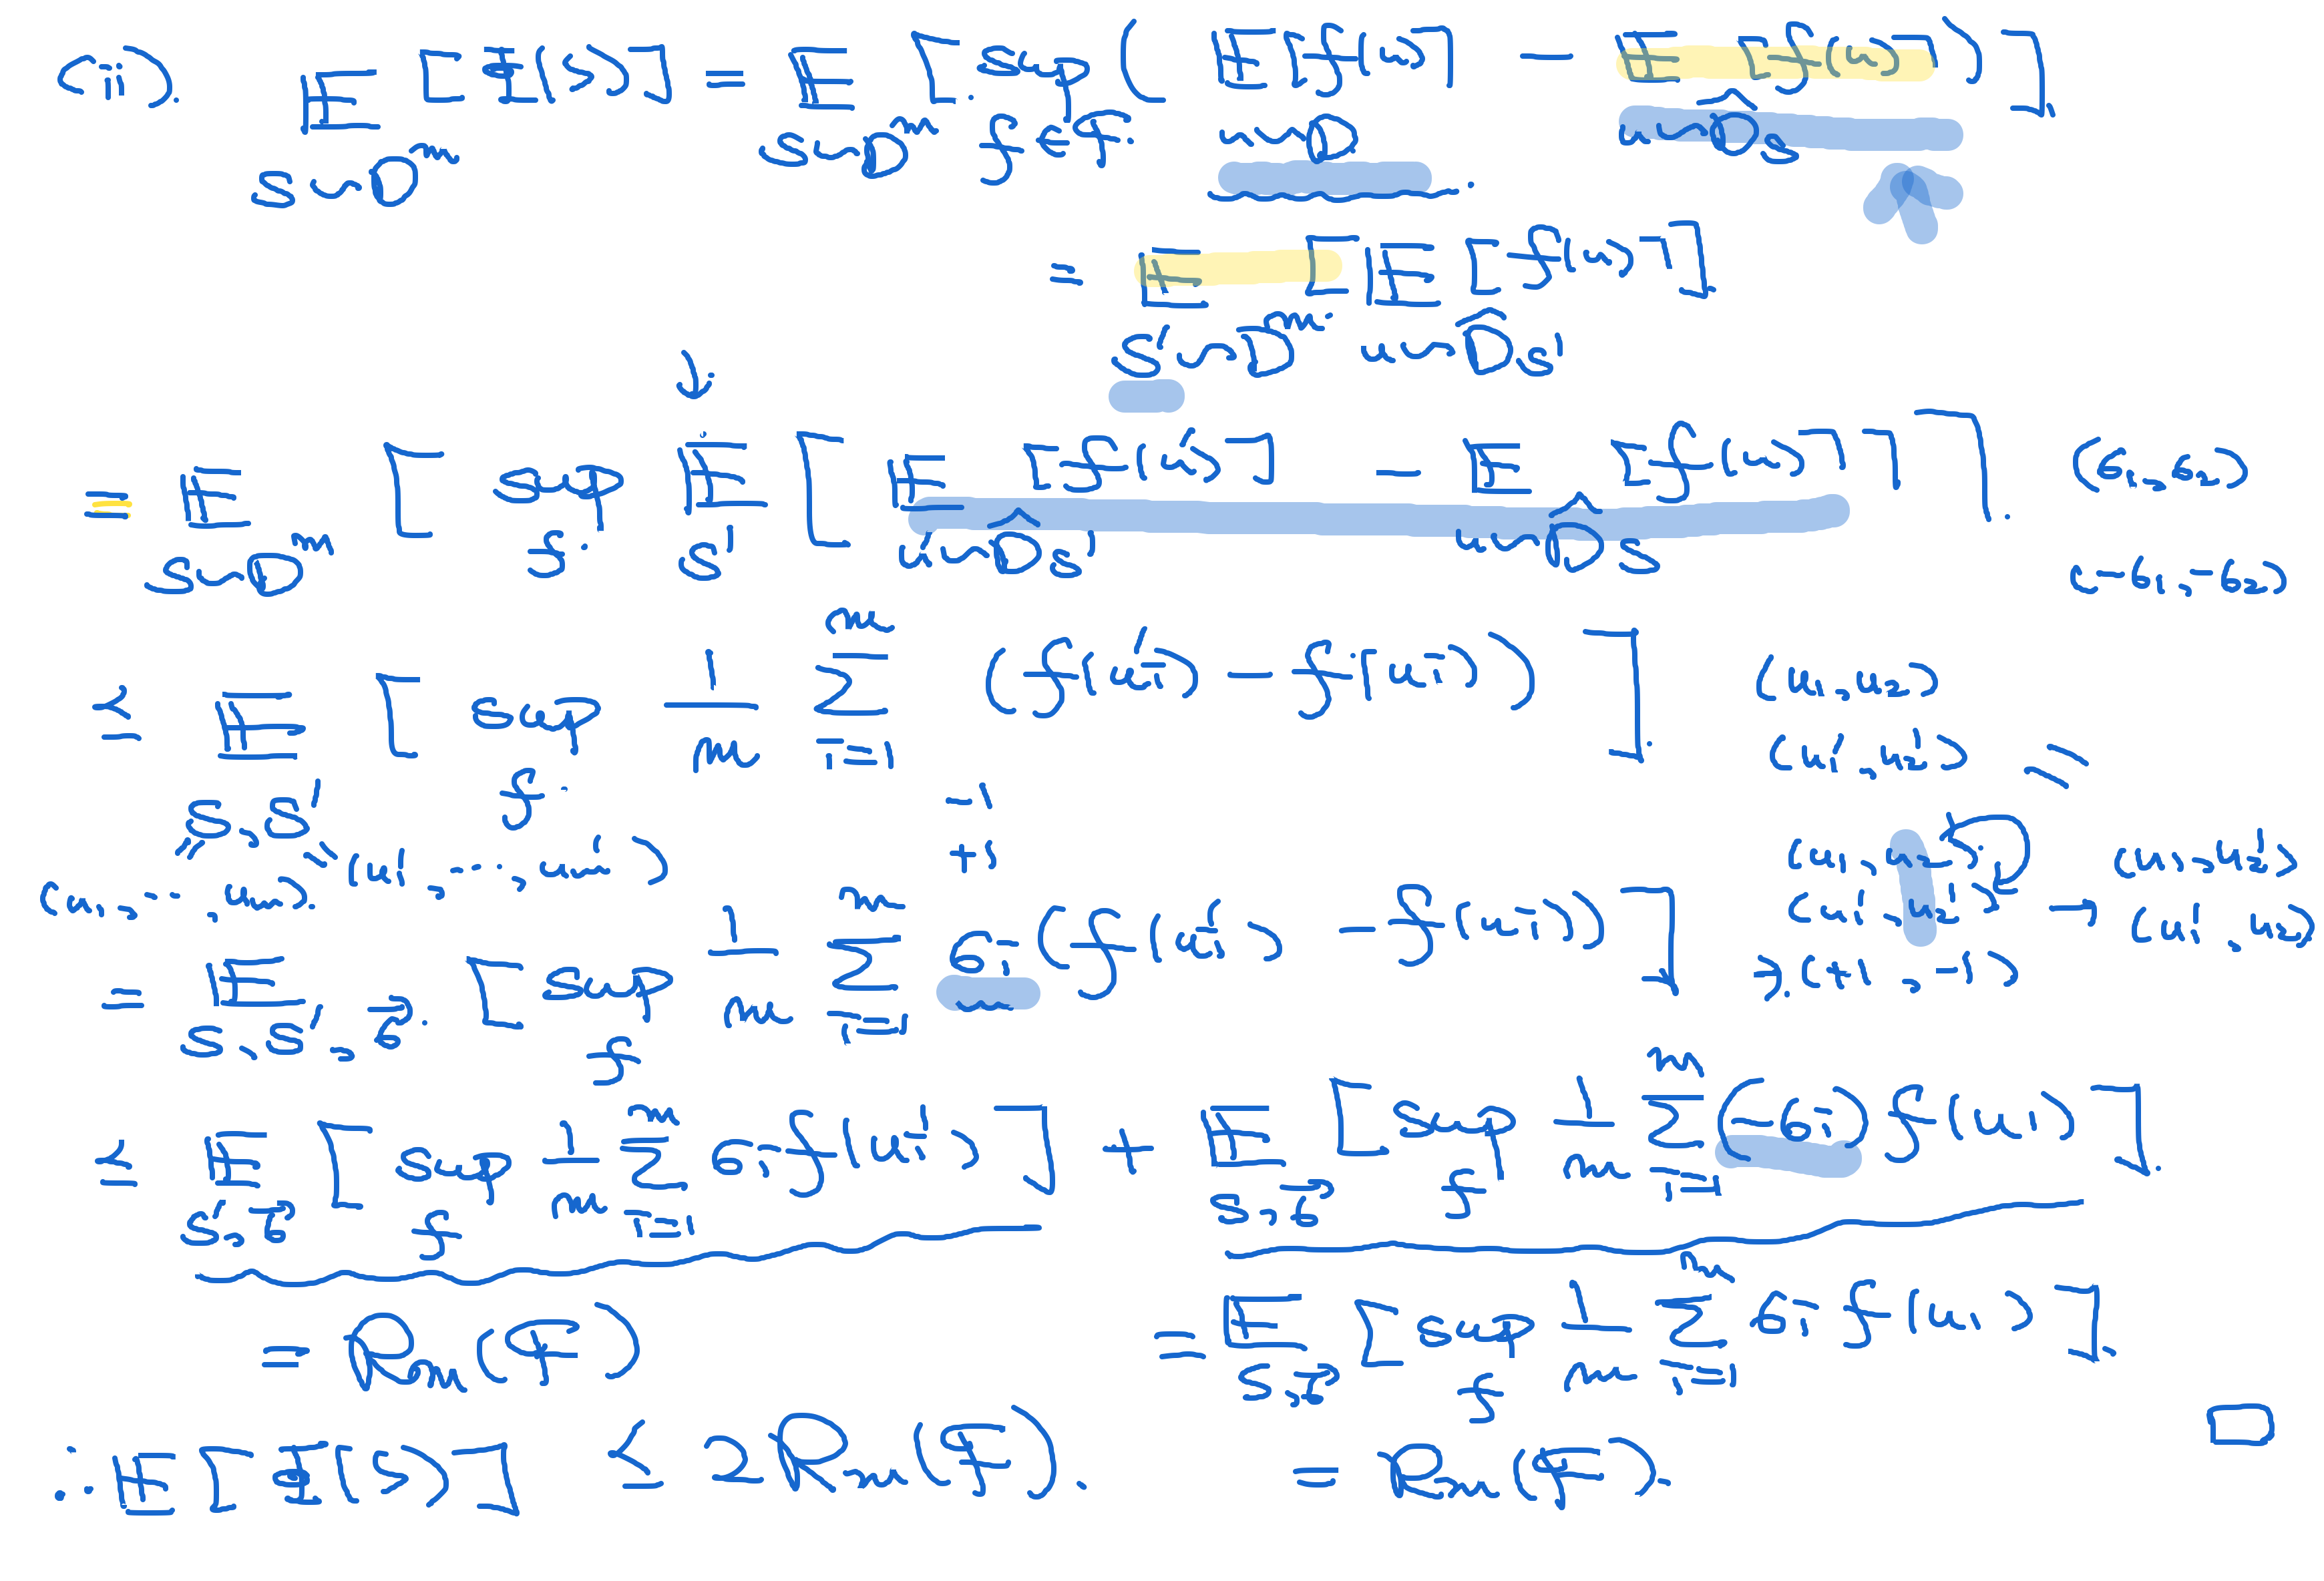 (ii). E_{S∼D^m} [Φ(S)] = E_{S∼D^m} [ sup_{f∈F} ( E_{u∼D} [f(u)] − E_{u∼D̂_S} [f(u)] ) ].
= E_{S'∼D^m} [ E_{u∼D̂_{S'}} [f(u)] ]
= E_{S∼D^m} [ sup_f E_{S'} [ E_{u'∼D̂_{S'}} [f(u')] − E_{u∼D̂_S} [f(u)] ] ]. (σ₁, σ₂)
(−σ₁, −σ₂)
≤ E_{S,S'} [ sup_f 1/m Σ_{i=1}^m (f(u'_i) − f(u_i)) ]. (u₁, u₂)
(u₁', u₂')
−1
+1
(u₁, …, u_m). (u₁', …, u_m')
(u₁, u₂) (u₁, u₂')
(u₁', u₂') → (u₁', u₂)
= E_{S,S',σ} [ sup_f 1/m Σ_{i=1}^m σ_i (f(u'_i) − f(u_i)) ] (+1, −1)
≤ E_{S',σ} [ sup_f 1/m Σ_{i=1}^m σ_i f(u'_i) ] + E_{S,σ} [ sup_f 1/m Σ_{i=1}^m (−σ_i) f(u_i) ].
= R_m(F) = E_{S,σ} [ sup_f 1/m Σ_{i=1}^m σ_i f(u_i) ].
∴ E[Φ(S)] ≤ 2R_m(F). = R_m(F). □